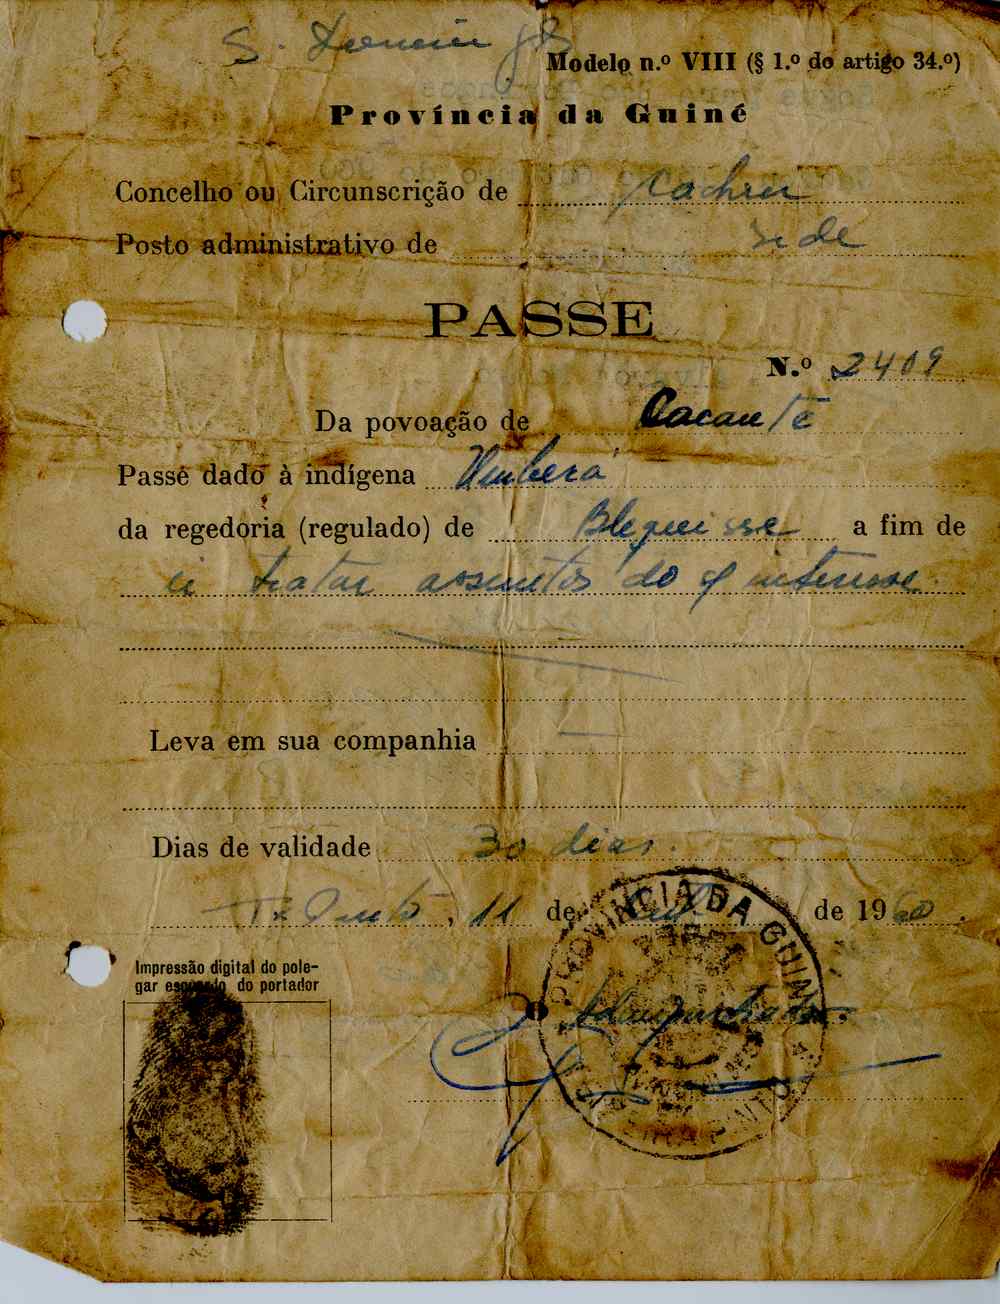 S. Domingos
Modelo n.º VIII (§ 1.º do artigo 34.º)
Província da Guiné
Concelho ou Circunscrição de Cacheu
Posto administrativo de Sede
PASSE
N.º 2409
Da povoação de Cacanté
Passe dado à indígena Umberá
da regedoria (regulado) de Blequisse a fim de
ir tratar assuntos do s/ interesse.
Leva em sua companhia —
Dias de validade 30 dias.
Tx Pinto, 11 de de 1960.
Impressão digital do pole-
gar esquerdo do portador
O
PROVÍNCIA DA GUINÉ
TEIXEIRA PINTO